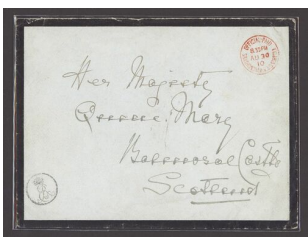 Her Majesty
Queen Mary
Balmoral Castle
Scotland